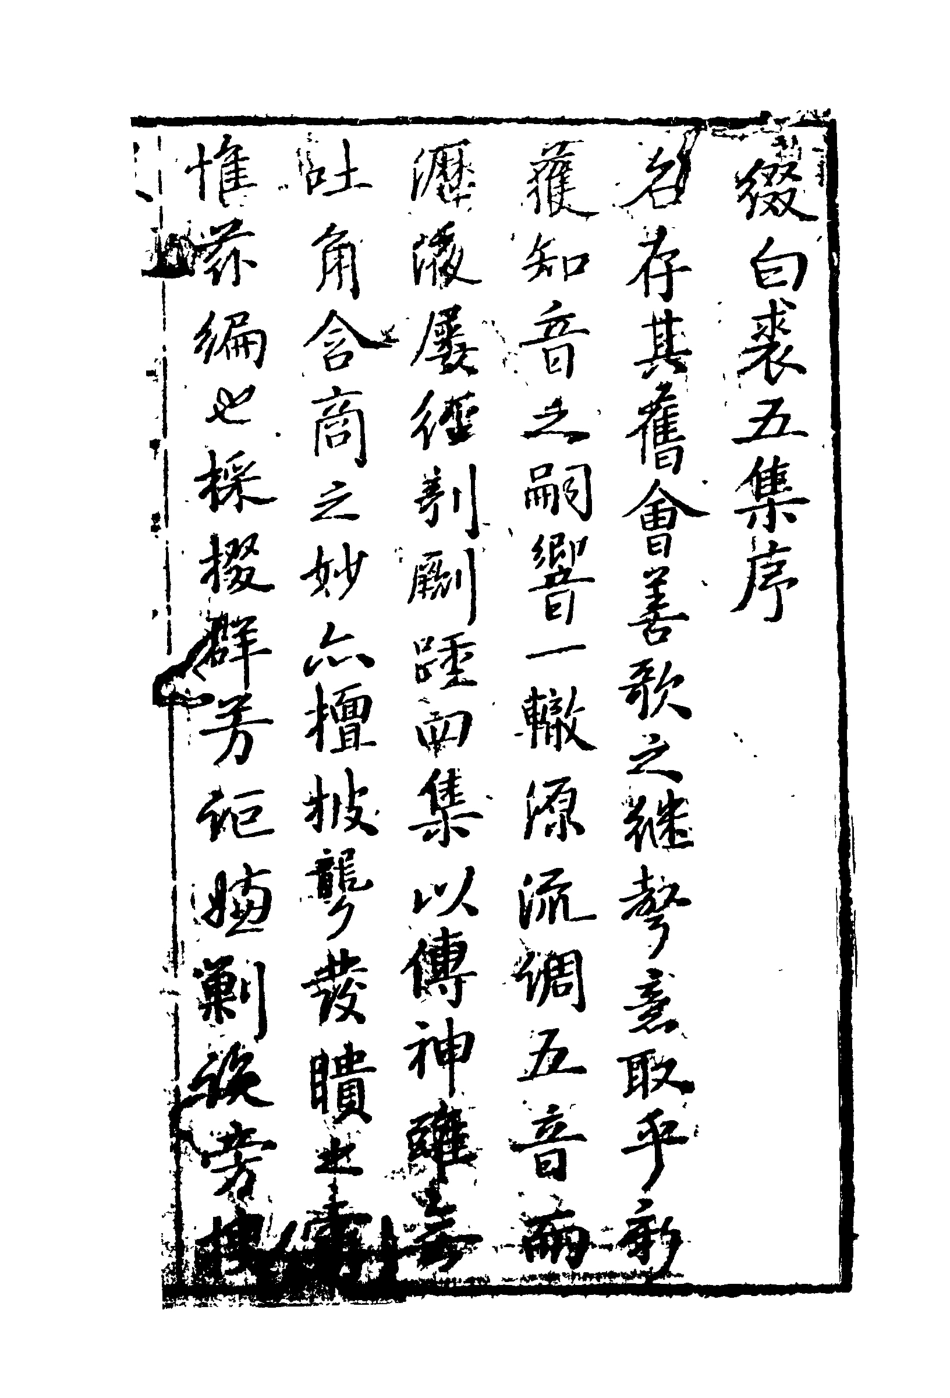 綴白裘五集序
名存其舊會善歌之继聲意取乎新
獲知音之嗣響一轍源流調五音而
瀝液屡經剞劂踵四集以傳神雖無
吐角含商之妙亦擅披聾發瞶之
惟兹編也採掇群芳詎嫌剿